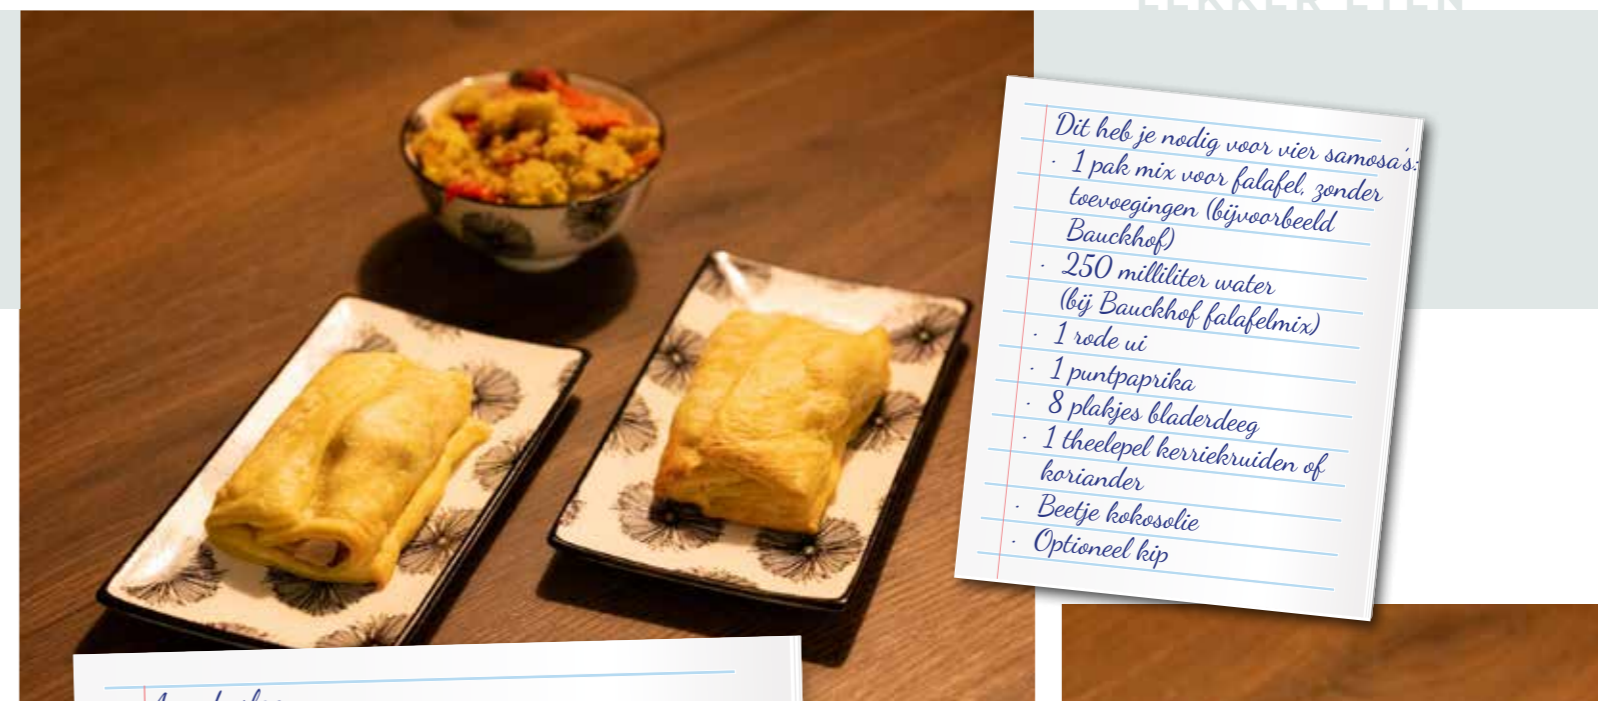 LEKKER ETEN
Dit heb je nodig voor vier samosa's:
· 1 pak mix voor falafel, zonder
toevoegingen (bijvoorbeeld
Bauckhof)
· 250 milliliter water
(bij Bauckhof falafelmix)
· 1 rode ui
· 1 puntpaprika
· 8 plakjes bladerdeeg
· 1 theelepel kerriekruiden of
koriander
· Beetje kokosolie
· Optioneel kip